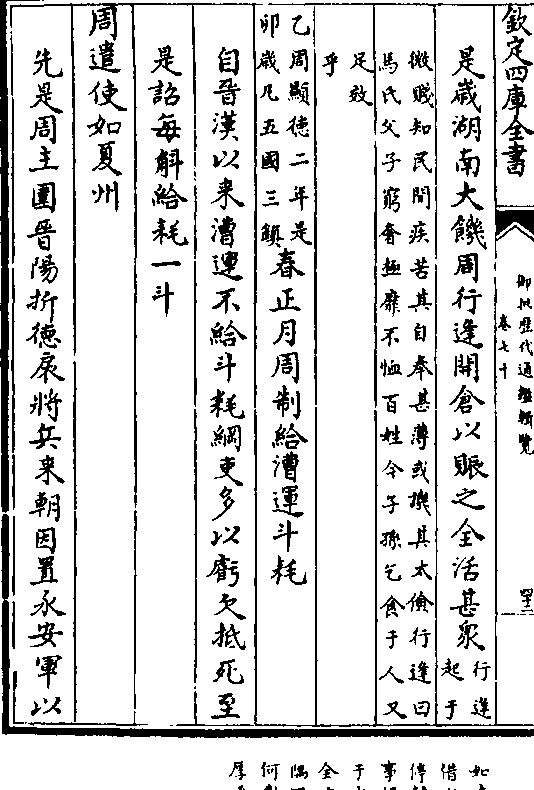 欽定四庫全書
御批歷代通鑑輯覽
卷七十
是歲湖南大饑周行逢開倉以賑之全活甚衆行逢起于
微賤知民間疾苦其自奉甚薄或譏其太儉行逢曰
馬氏父子窮奢極靡不恤百姓今子孫乞食于人又
足效
乎
乙卯周顯德二年是歲凡五國三鎮春正月周制給漕運斗耗
自晉漢以來漕運不給斗耗綱吏多以虧欠抵死至
是詔每斛給耗一斗
周遣使如夏州
先是周主圍晉陽折德扆將兵來朝因置永安軍以